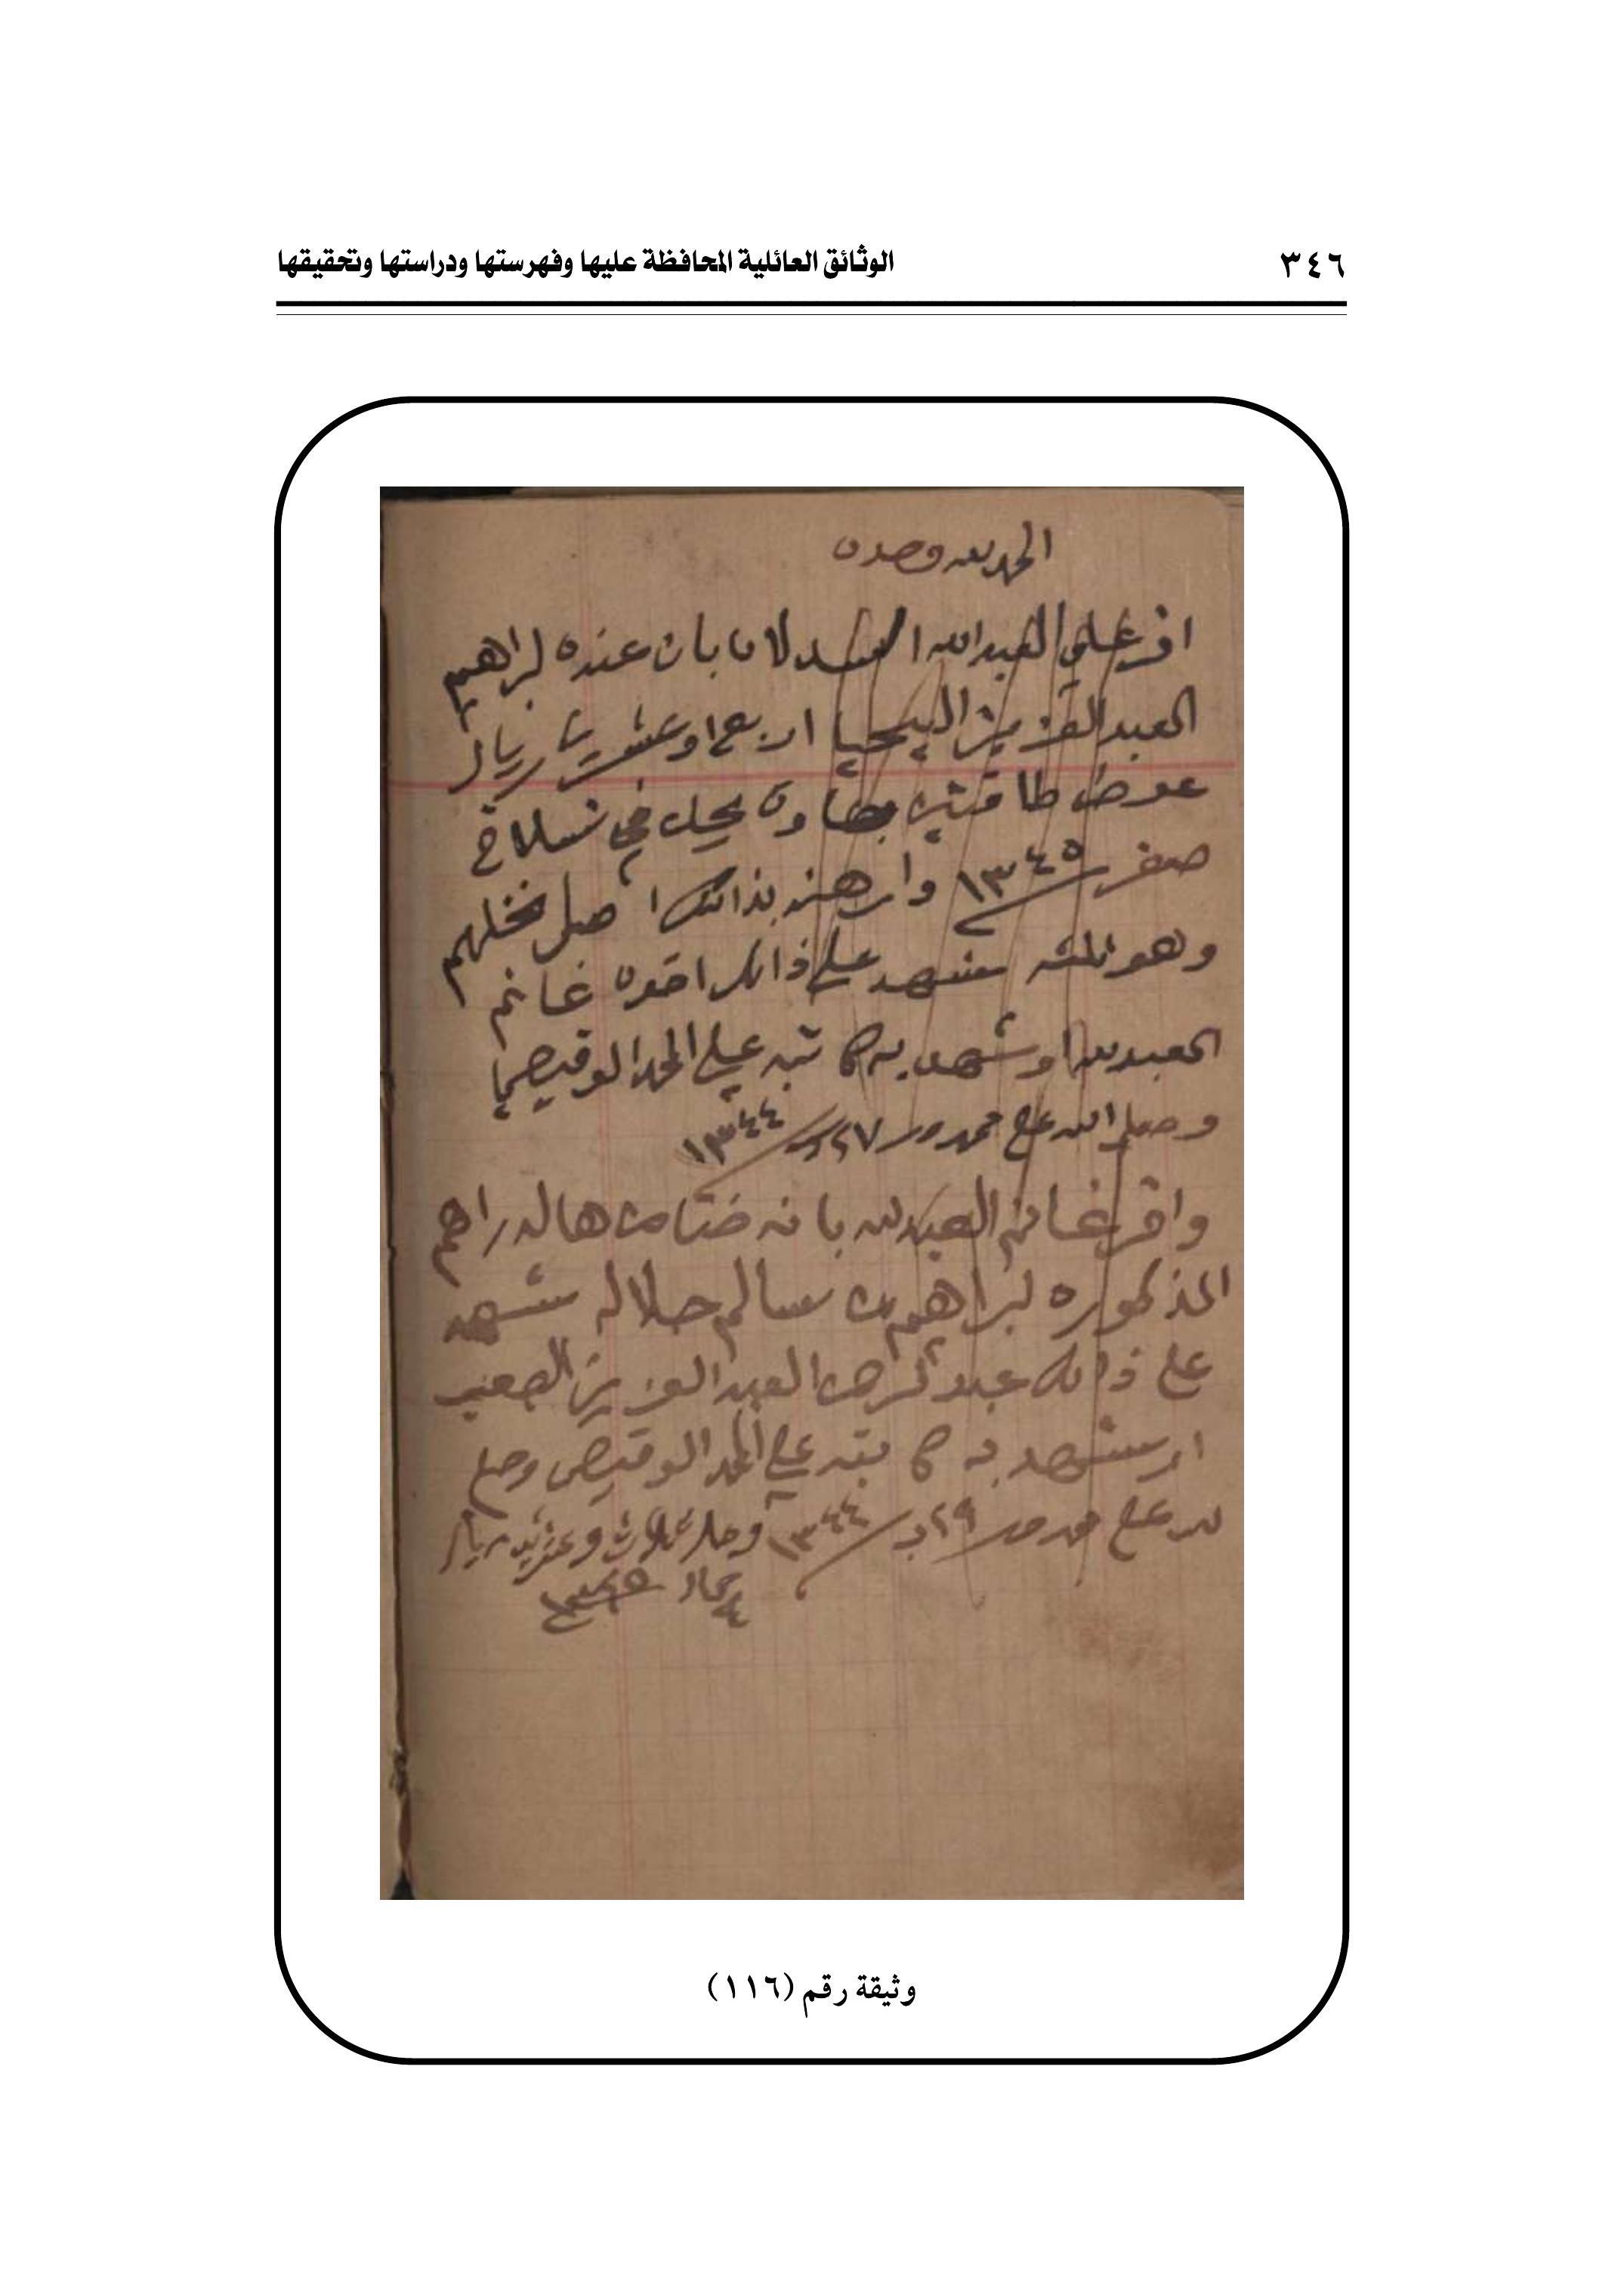 ٣٤٦
الوثائق العائلية المحافظة عليها وفهرستها ودراستها وتحقيقها
الحمد لله وحده
اقر علي العبدالله بان عنده لبراهيم
العبدالعزيز اليحيا اربع وعشرين ريال
عوض طاقتين يحل في نسلاخ
صفر ١٣٤٥ وارهنه بذالك اصل نخلهم
وهو شهد علي ذالك اخوه غانم
العبدلله وشهد به كاتبه علي الحمد الوقيصي
وصلى الله على محمد ٢٧ ١٣٤٤
واقر غانم العبدلله بانه هالدراهم
المذكوره لبراهيم من سالم حلاله شهد
على ذالك عبدالرحمن العبدالعزيز الصعب
وشهد به كاتبه علي الحمد الوقيصي وصلى
لله على محمد ٢٩ ١٣٤٤ ثلاث وعشرين ريال
١٣٤٥
وثيقة رقم (١١٦)